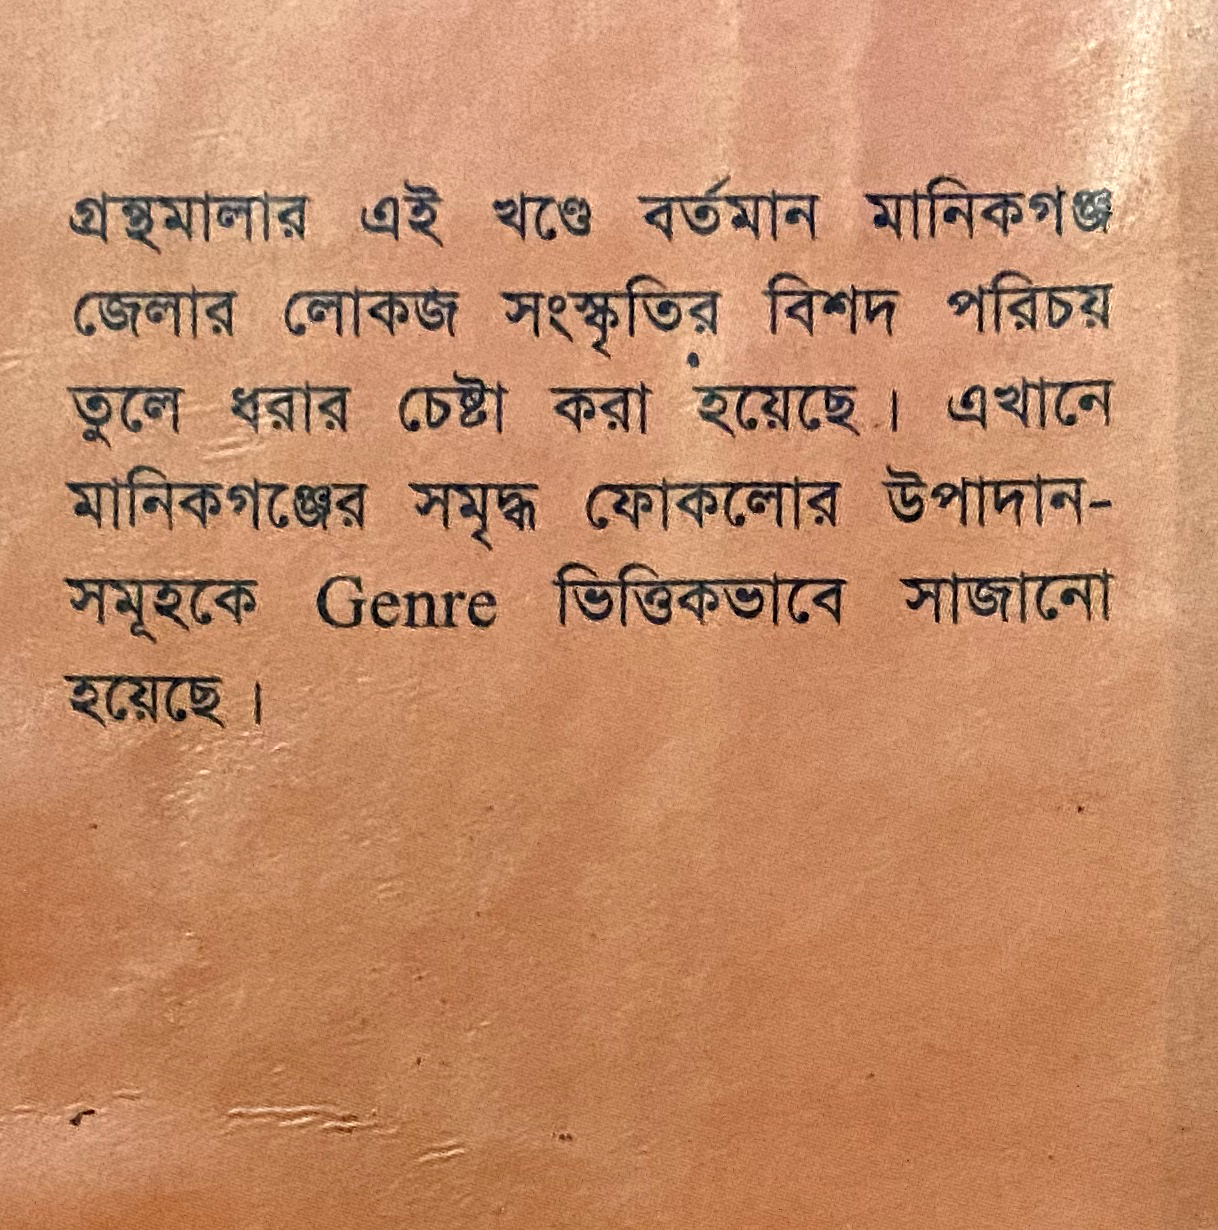 গ্রন্থমালার এই খণ্ডে বর্তমান মানিকগঞ্জ
জেলার লোকজ সংস্কৃতির বিশদ পরিচয়
তুলে ধরার চেষ্টা করা হয়েছে। এখানে
মানিকগঞ্জের সমৃদ্ধ ফোকলোর উপাদান-
সমূহকে Genre ভিত্তিকভাবে সাজানো
হয়েছে।